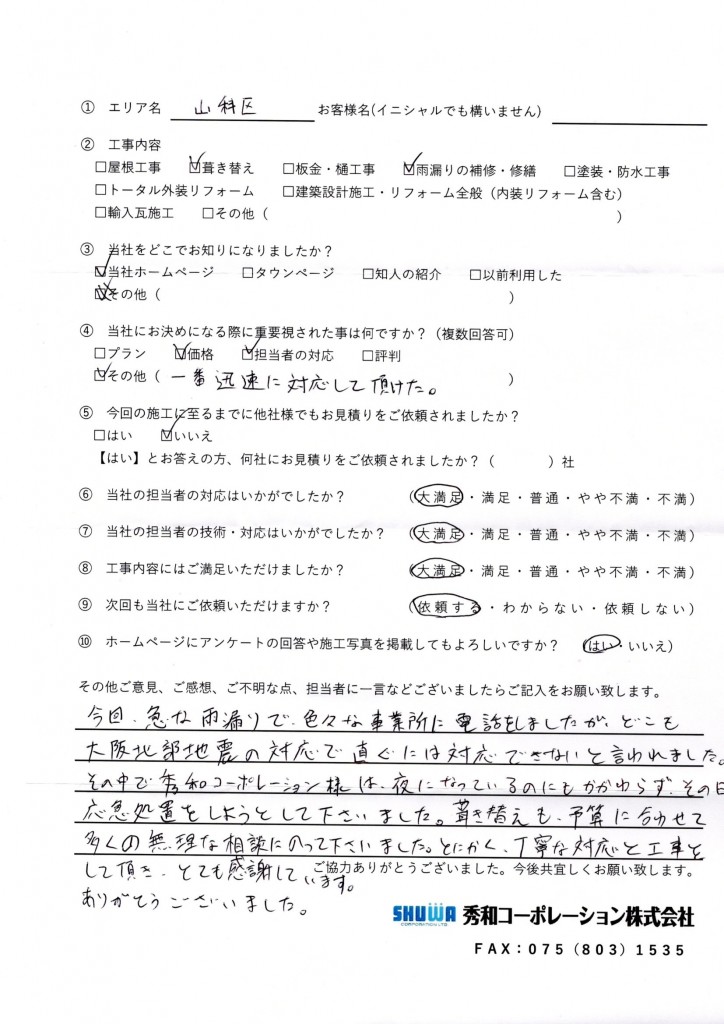 ① エリア名 山科区 お客様名(イニシャルでも構いません)
② 工事内容
□屋根工事 ☑葺き替え □板金・樋工事 ☑雨漏りの補修・修繕 □塗装・防水工事
□トータル外装リフォーム □建築設計施工・リフォーム全般(内装リフォーム含む)
□輸入瓦施工 □その他( )
③ 当社をどこでお知りになりましたか?
☑当社ホームページ □タウンページ □知人の紹介 □以前利用した
☑その他( )
④ 当社にお決めになる際に重要視された事は何ですか?(複数回答可)
□プラン ☑価格 ☑担当者の対応 □評判
☑その他( 一番迅速に対応して頂けた。 )
⑤ 今回の施工に至るまでに他社様でもお見積りをご依頼されましたか?
□はい ☑いいえ
【はい】とお答えの方、何社にお見積りをご依頼されましたか?( )社
⑥ 当社の担当者の対応はいかがでしたか? (大満足・満足・普通・やや不満・不満)
⑦ 当社の担当者の技術・対応はいかがでしたか? (大満足・満足・普通・やや不満・不満)
⑧ 工事内容にはご満足いただけましたか? (大満足・満足・普通・やや不満・不満)
⑨ 次回も当社にご依頼いただけますか? (依頼する・わからない・依頼しない)
⑩ ホームページにアンケートの回答や施工写真を掲載してもよろしいですか? (はい・いいえ)
その他ご意見、ご感想、ご不明な点、担当者に一言などございましたらご記入をお願い致します。
今回、急な雨漏りで、色々な事業所に電話をしましたが、どこも
大阪北部地震の対応で直ぐには対応できないと言われました。
その中で秀和コーポレーション様は、夜になっているのにもかかわらず、その日
応急処置をしようとして下さいました。葺き替えも、予算に合わせて
多くの無理な相談にのって下さいました。とにかく、丁寧な対応と工事を
して頂き、とても感謝しています。
ご協力ありがとうございました。今後共宜しくお願い致します。
ありがとうございました。
SHUWA CORPORATION LTD 秀和コーポレーション株式会社
FAX:075(803)1535